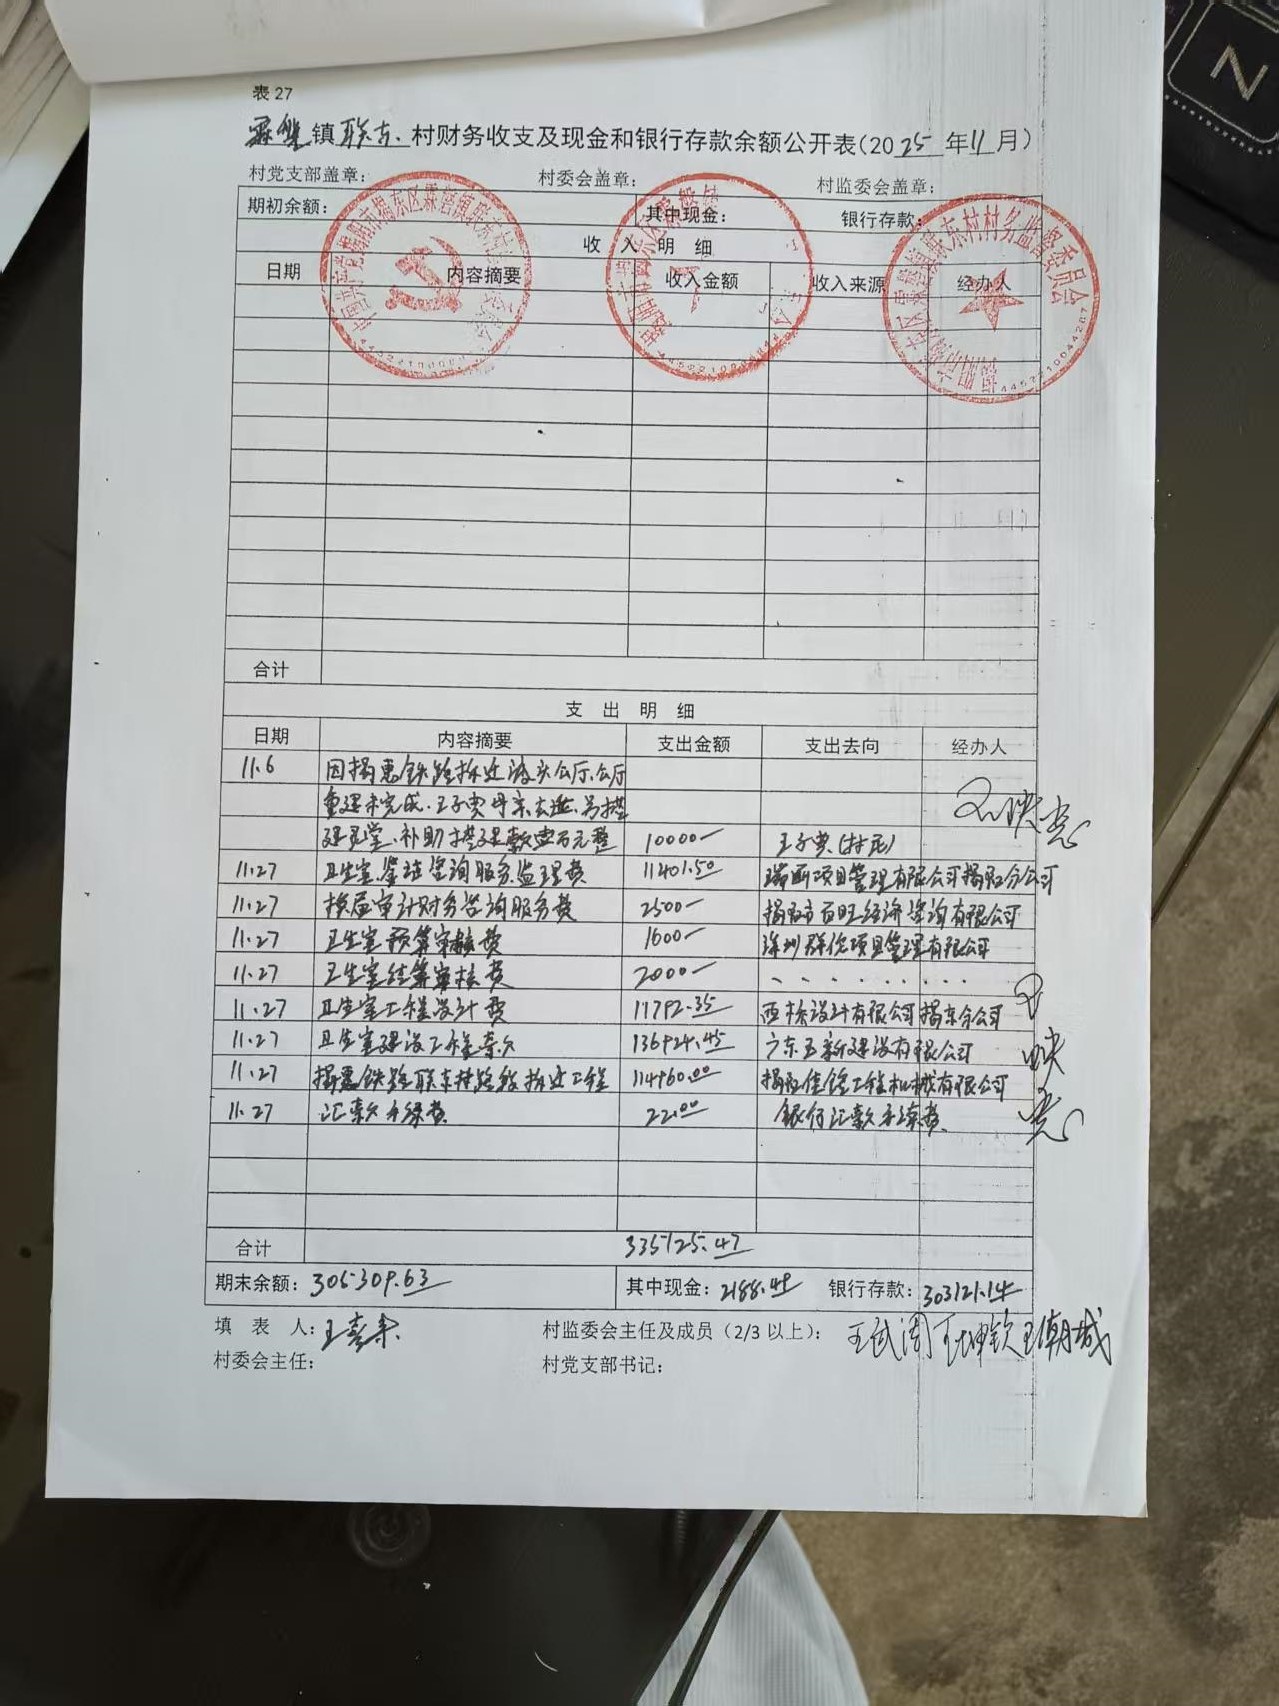 表27
霖磐镇联东村财务收支及现金和银行存款余额公开表(2025年11月)
村党支部盖章: 村委会盖章: 村监委会盖章:
期初余额: 其中现金: 银行存款:
收 入 明 细
日期 内容摘要 收入金额 收入来源 经办人
合计
支 出 明 细
日期 内容摘要 支出金额 支出去向 经办人
11.6 因揭惠铁路拆迁 公厅.公厅
重建未完成.王子 母亲去逝.另搭
建灵堂.补助搭建款壹万元整 10000- 王子 (村民)
11.27 卫生室 咨询服务监理费 11401.50 项目管理有限公司揭阳分公司
11.27 换届审计财务咨询服务费 2500- 揭阳市百旺经济咨询有限公司
11.27 卫生室预算审核费 1600- 深圳群伦项目管理有限公司
11.27 卫生室结算审核费 2000-
11.27 卫生室工程设计费 11792.35 设计有限公司揭东分公司
11.27 卫生室建设工程款 136924.45 广东 新建设有限公司
11.27 揭惠铁路联东村路段拆迁工程 114960.00 揭阳佳锋工程机械有限公司
11.27 汇款手续费 22.00 银行汇款手续费
王映
合计 335125.47
期末余额: 305309.63 其中现金: 2188.49 银行存款: 303121.14
填 表 人: 王 村监委会主任及成员(2/3以上): 王武 王坤钦 王朝城
村委会主任: 村党支部书记: